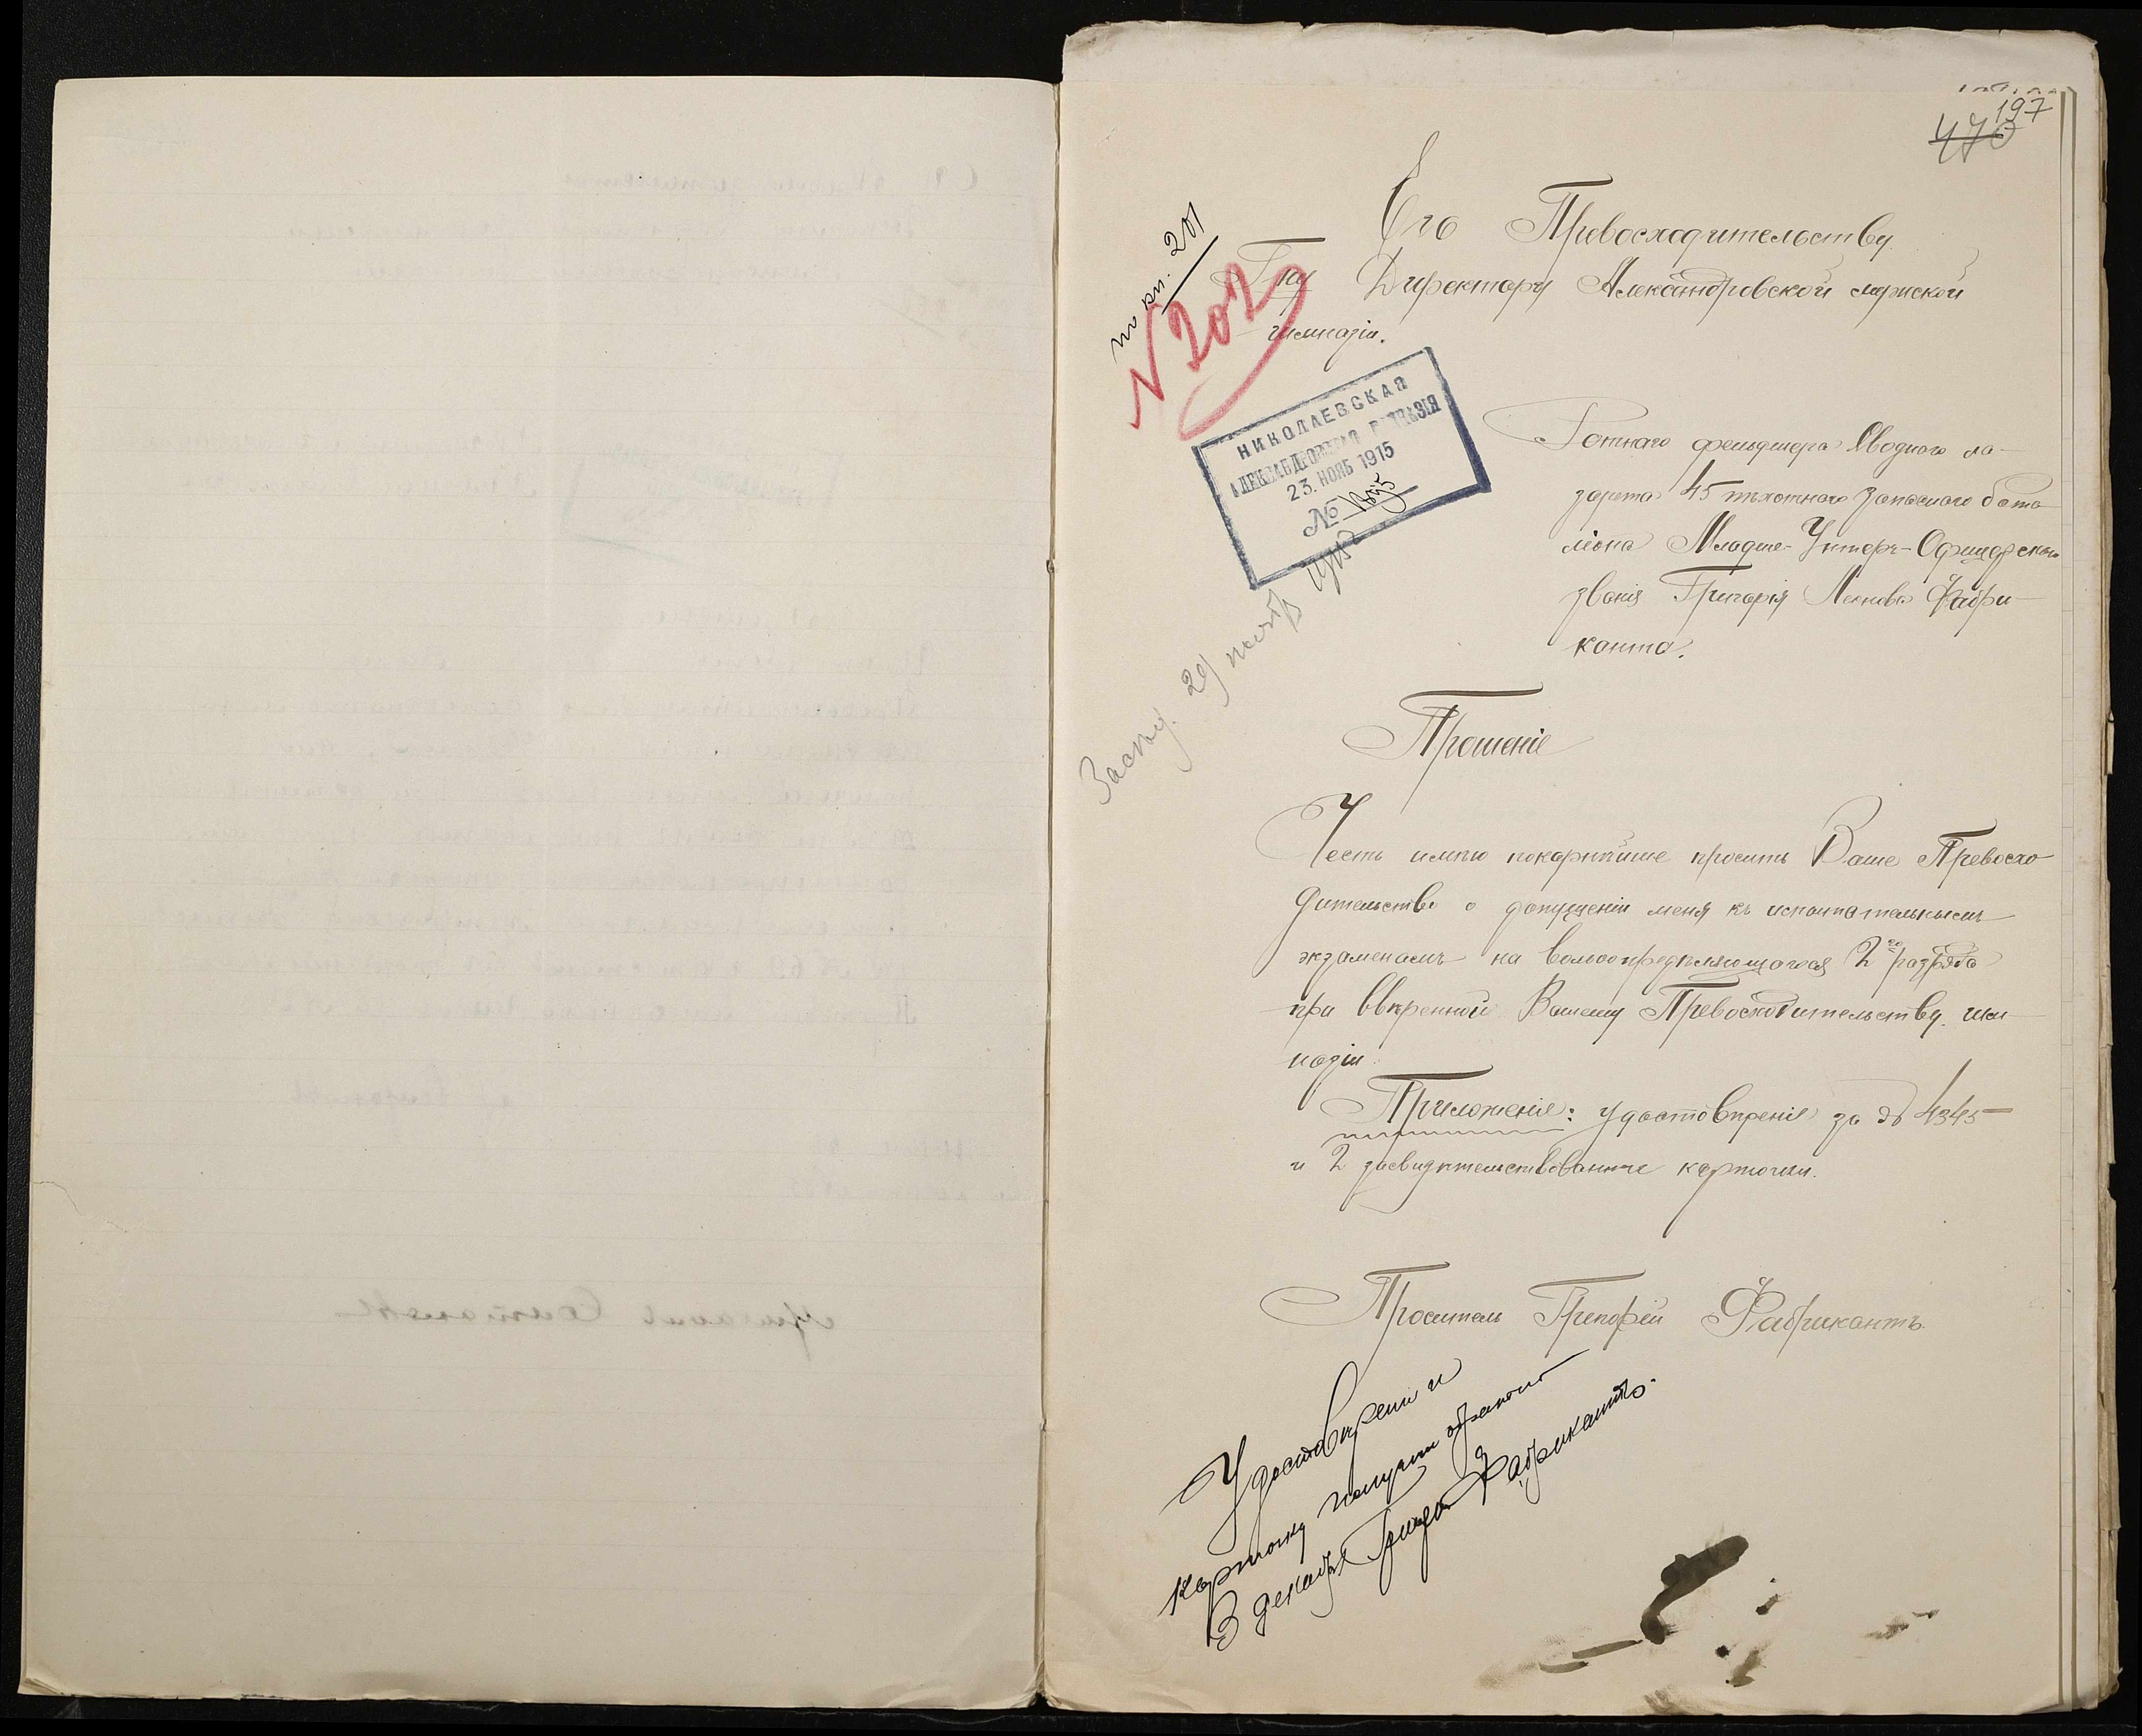 197
470
Его Превосходительству
Гну Директору Александровской мужской
гимназіи.
по кн. 201
№ 202
НИКОЛАЕВСКАЯ
АЛЕКСАНДРОВСКАЯ ГИМНАЗІЯ
23. НОЯБ 1915
№
Ротнаго фельдшера Сводного ла-
зарета 45 пѣхотнаго запаснаго бата
ліона Младше-Унтеръ-Офицерскаго
званія Григорія Фабри-
канта.
29 ноября 1915
Прошеніе
Честь имѣю покорнѣйше просить Ваше Превосхо
дительство о допущеніи меня къ испытательнымъ
экзаменамъ на вольноопредѣляющагося 2го разряда
при ввѣренной Вашему Превосходительству гим
назіи.
Приложеніе: удостовѣреніе за № 4345
и 2 засвидѣтельствованные карточки.
Проситель Григорій Фабрикантъ.
Удостовѣреніе и
карточку получилъ обратно
3 декабря Фабрикантъ.